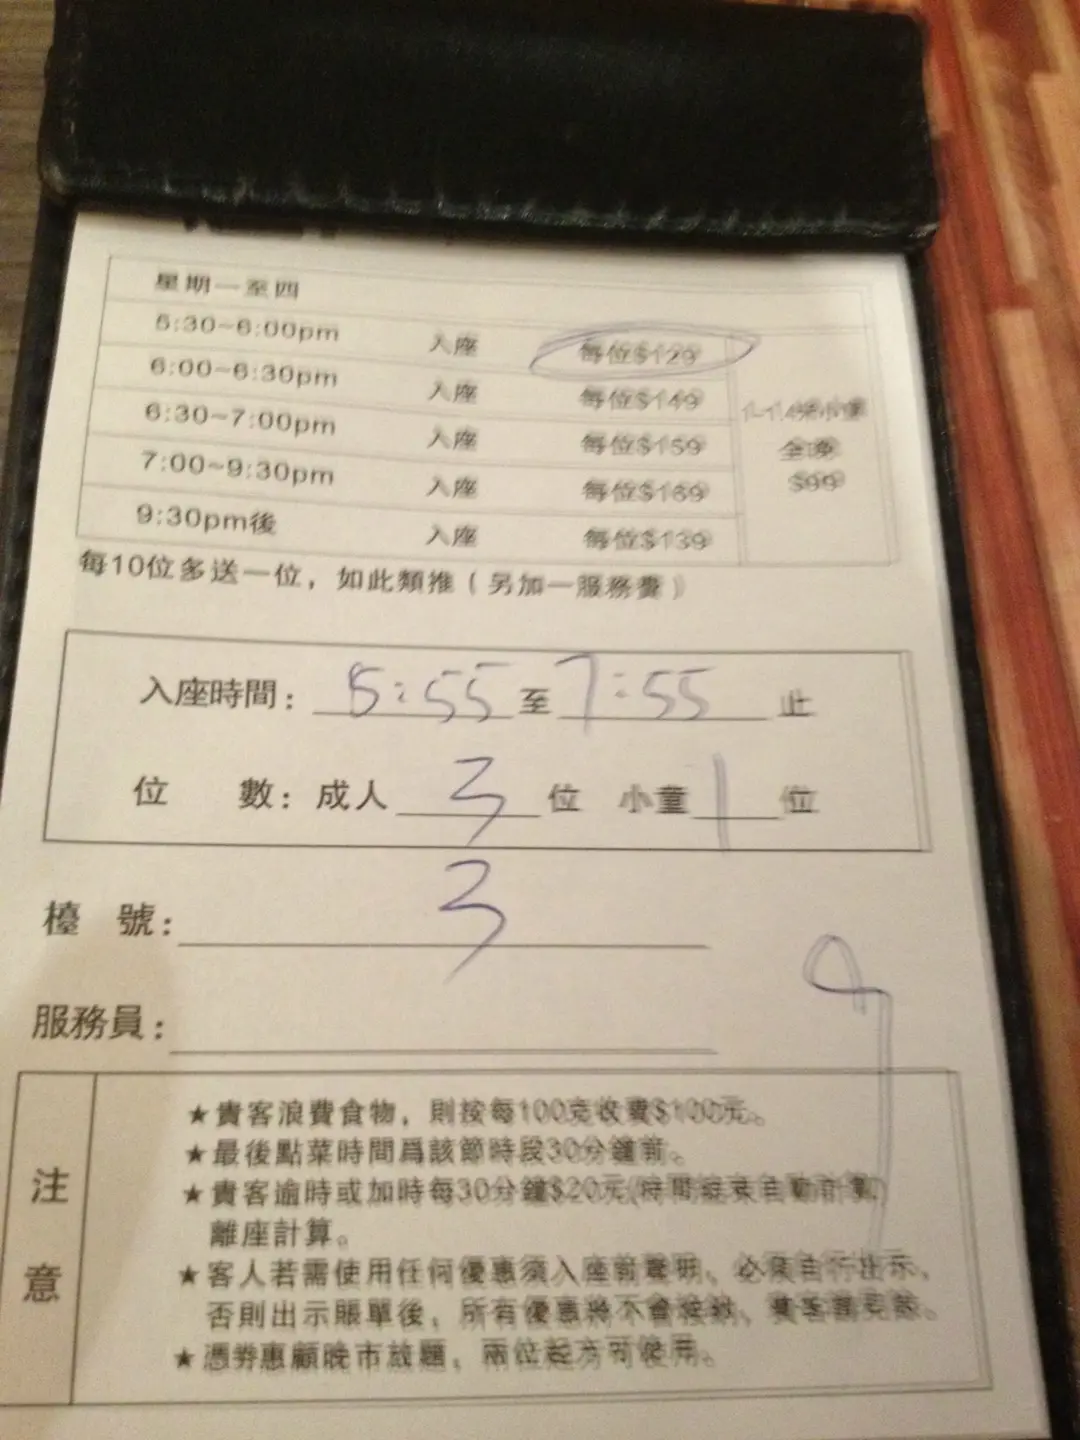 星期一至四
5:30~6:00pm 入座 每位$129
6:00~6:30pm 入座 每位$149
6:30~7:00pm 入座 每位$159
7:00~9:30pm 入座 每位$169
9:30pm後 入座 每位$139
小童
全晚
$99
每10位多送一位，如此類推（另加一服務費）
入座時間：5:55至7:55止
位數：成人3位 小童1位
檯號：3
服務員：
注意
★貴客浪費食物，則按每100克收費$100元。
★最後點菜時間爲該節時段30分鐘前。
★貴客逾時或加時每30分鐘$20元(時間結束自動計算)
離座計算。
★客人若需使用任何優惠須入座前聲明，必須自行出示，
否則出示賬單後，所有優惠將不會接納，貴客請見諒。
★憑券惠顧晚市放題，兩位起方可使用。